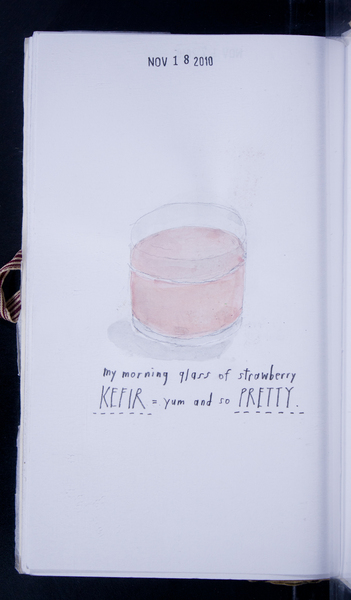 NOV 18 2010
my morning glass of strawberry
KEFIR = yum and so PRETTY.